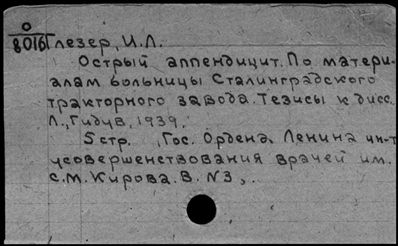 О
8016 Глезер, И.Л.
Острый аппендицит. По матери-
алам больницы Сталинградского
тракторного завода. Тезисы к дисс.
Л., Гидув, 1939.
5 стр. , Гос. Ордена Ленина ин-т
усовершенствования врачей им.
С.М. Кирова. В. N3,.